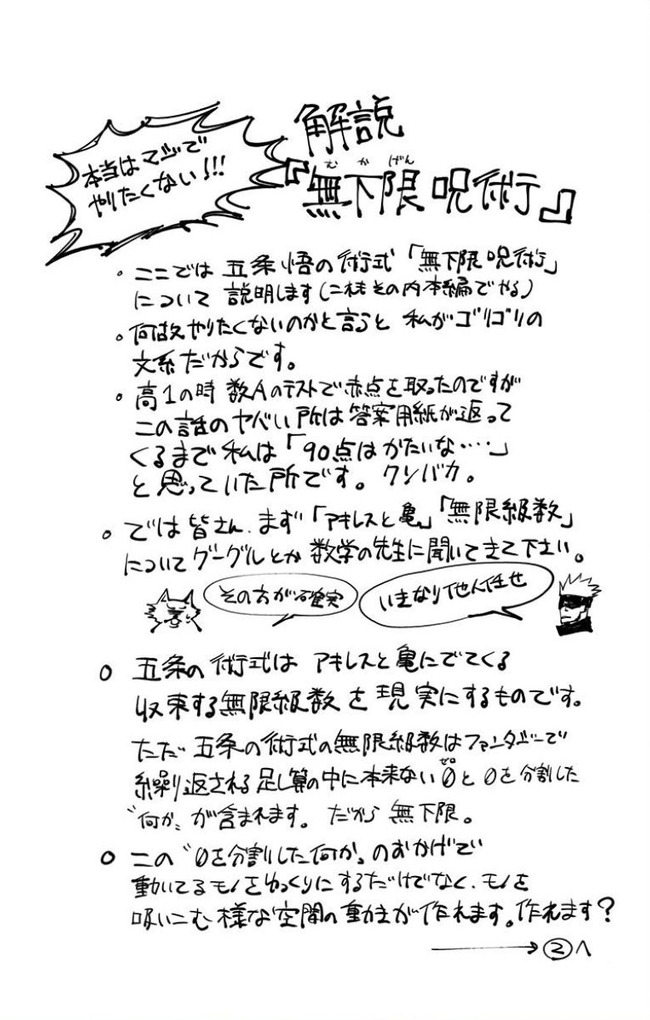 本当はマジで
やりたくない!!!
解説
むかげん
『無下限呪術』
。ここでは 五条悟の術式「無下限呪術」
について 説明します(これもその内本編でやる)
。何故やりたくないのかと言うと 私がゴリゴリの
文系だからです。
。高1の時 数Aのテストで赤点を取ったのですが
この話のヤバい所は答案用紙が返って
くるまで私は「90点はかたいな‥‥」
と思っていた所です。クソバカ。
。では皆さん、まず「アキレスと亀」「無限級数」
についてグーグルとか数学の先生に聞いてきて下さい。
その方が確実
いきなり他人任せ
○ 五条の術式は アキレスと亀にでてくる
収束する無限級数を現実にするものです。
ただ 五条の術式の無限級数はファンタジーで
ゼロ
繰り返される足し算の中に本来ない0と0を分割した
〝何か〟が含まれます。だから無下限。
○ この〝0を分割した何か〟のおかげで
動いてるモノをゆっくりにするだけでなく、モノを
吸いこむ様な空間の動きが作れます。作れます?
→②へ